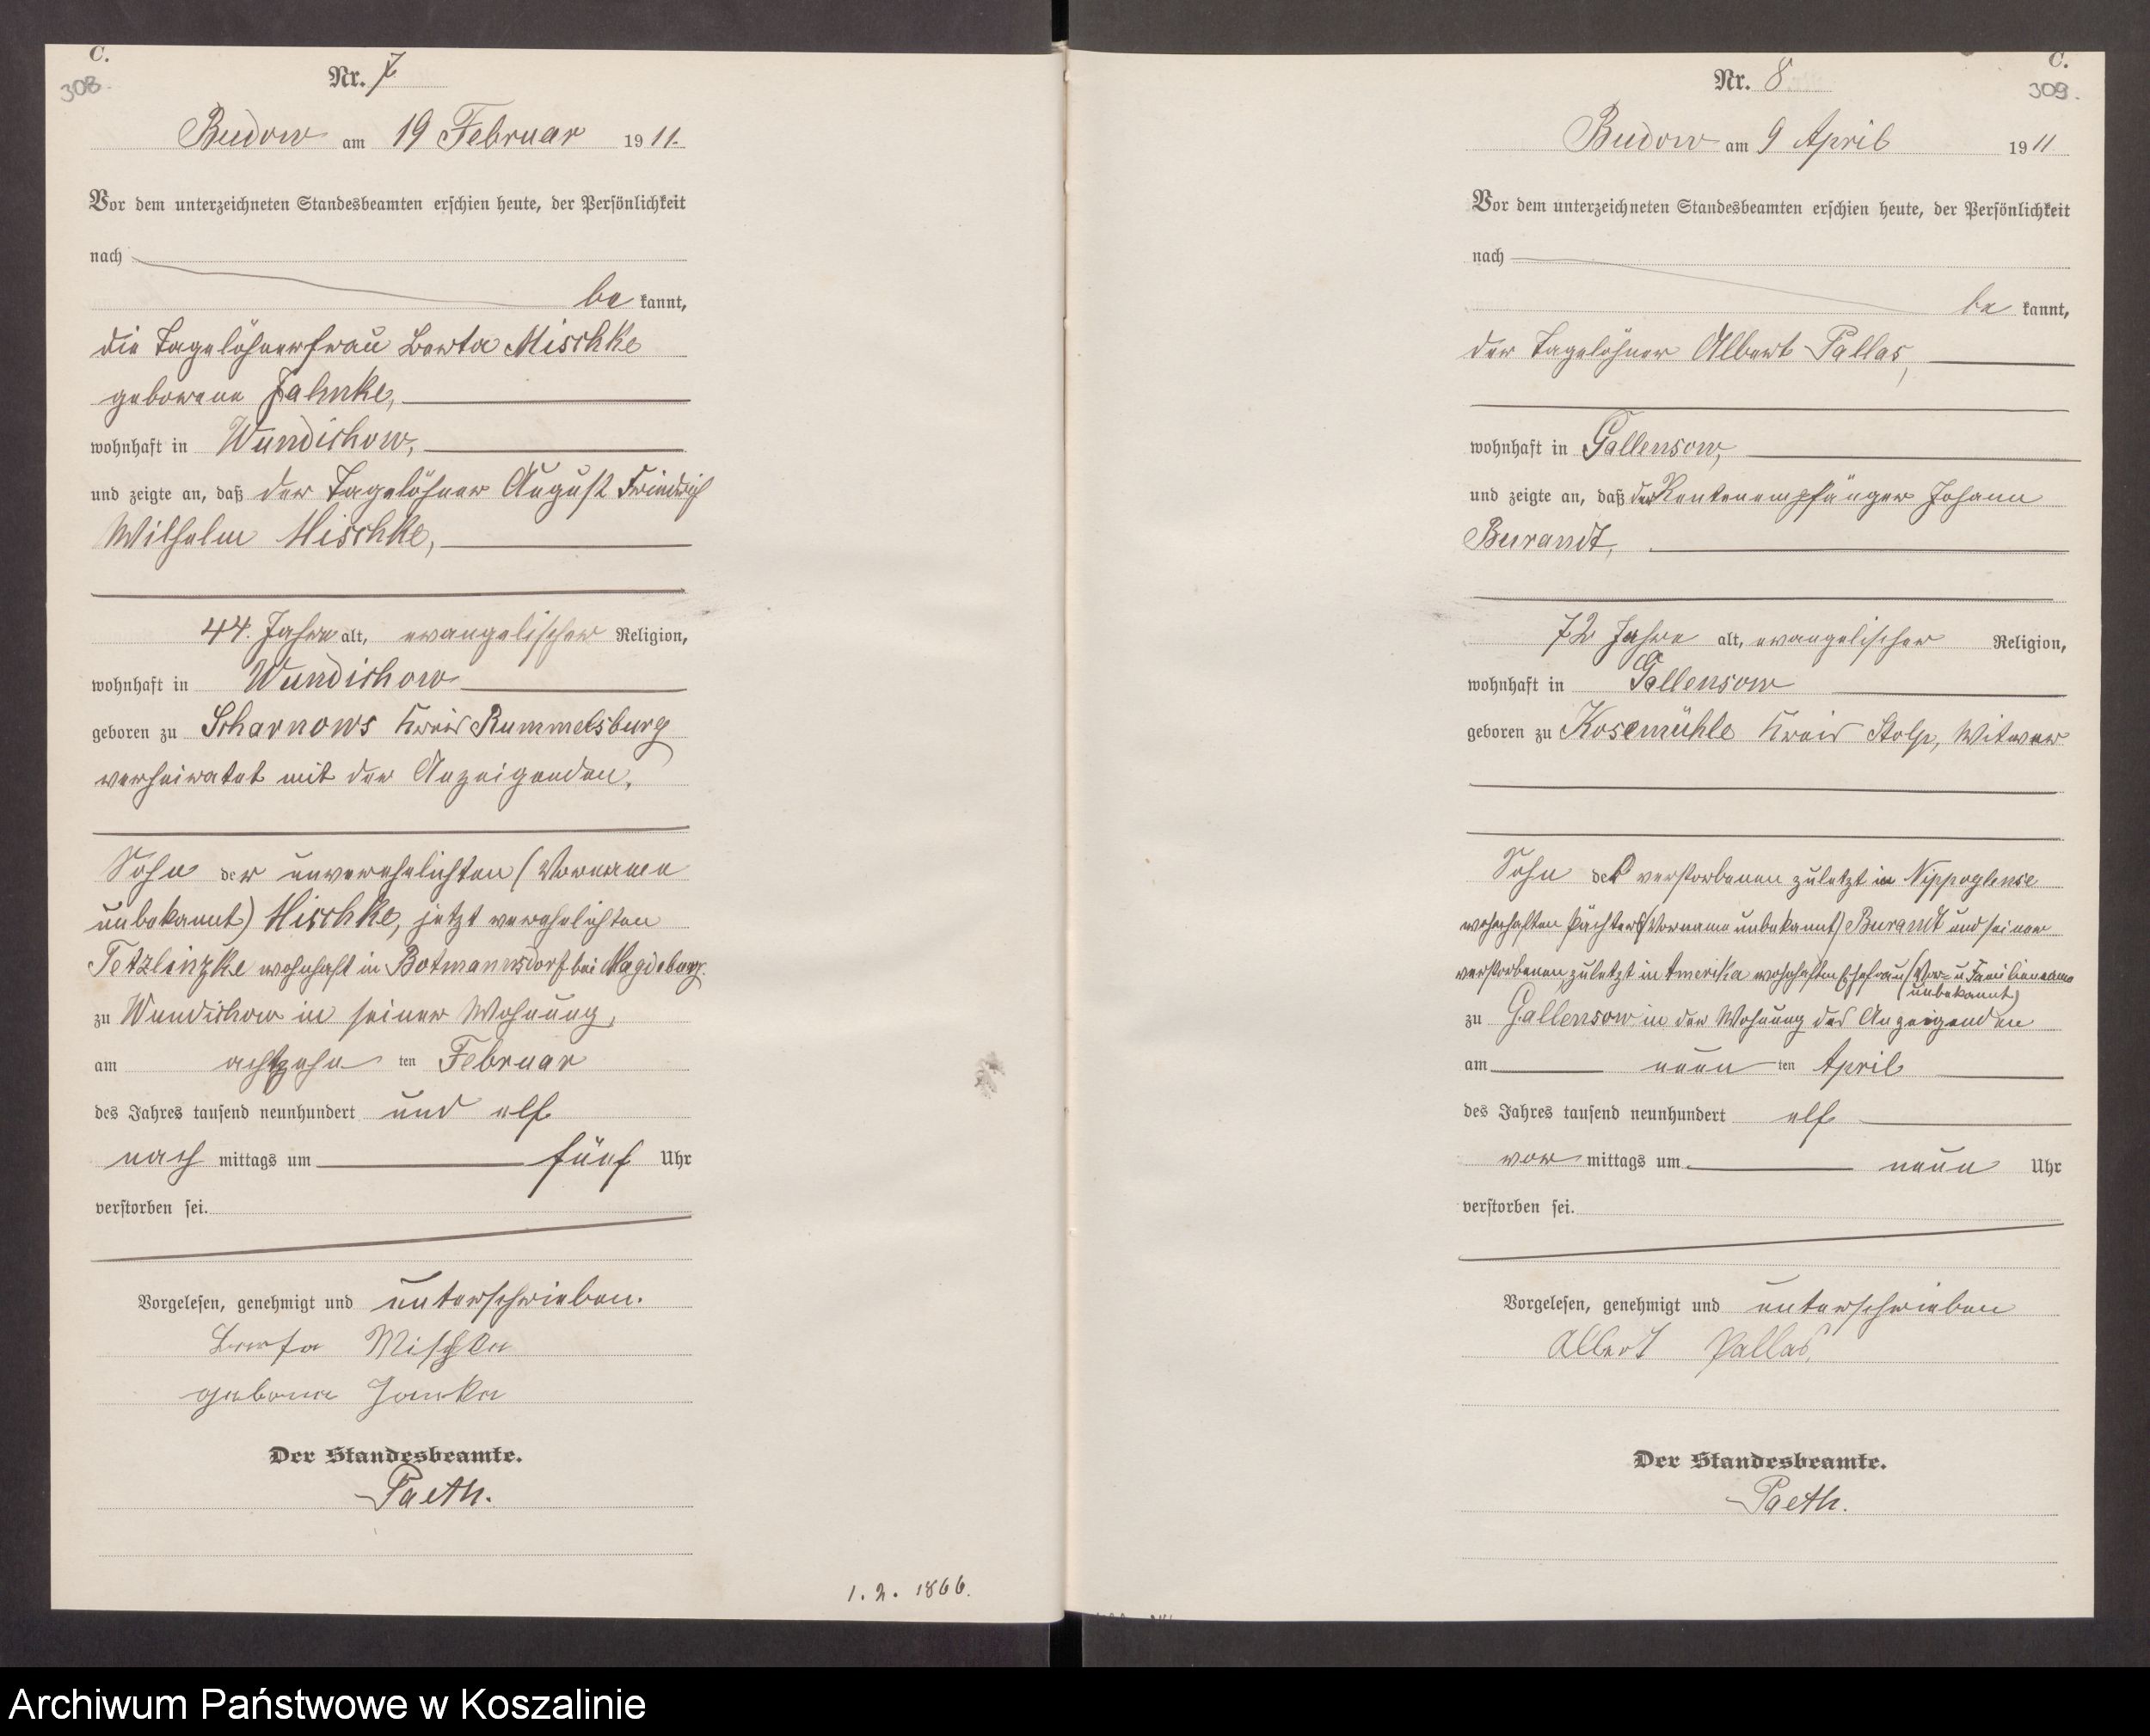 C.
308.
Nr. 7
Budow am 19 Februar 1911.
Vor dem unterzeichneten Standesbeamten erschien heute, der Persönlichkeit
nach
be kannt,
die Tagelöhnerfrau Berta Mischke
geborene Jahnke,
wohnhaft in Wundichow,
und zeigte an, daß der Tagelöhner August Friedrich
Wilhelm Mischke,
44. Jahre alt, evangelischer Religion,
wohnhaft in Wundichow
geboren zu Scharnows Kreis Rummelsburg
verheiratet mit der Anzeigenden.
Sohn der unverehelichten (Vorname
unbekannt) Mischke, jetzt verehelichten
Tetzlinzke wohnhaft in Botmannsdorf bei Magdeburg.
zu Wundichow in seiner Wohnung,
am achtzehn ten Februar
des Jahres tausend neunhundert und elf
nach mittags um fünf Uhr
verstorben sei.
Vorgelesen, genehmigt und unterschrieben.
Berta Mischke
geborne Janke
Der Standesbeamte.
Paeth.
1. 2. 1866.
C.
309.
Nr. 8
Budow am 9 April 1911
Vor dem unterzeichneten Standesbeamten erschien heute, der Persönlichkeit
nach
be kannt,
der Tagelöhner Albert Pallas,
wohnhaft in Gallensow,
und zeigte an, daß der Rentenempfänger Johann
Burandt,
72 Jahre alt, evangelischer Religion,
wohnhaft in Gallensow
geboren zu Kosemühle Kreis Stolp, Witwer
Sohn des verstorbenen zuletzt in Nippoglense
wohnhaften Pächters (Vorname unbekannt) Burandt und seiner
verstorbenen zuletzt in Amerika wohnhaften Ehefrau (Vor- u. Familienname
unbekannt)
zu Gallensow in der Wohnung des Anzeigenden
am neun ten April
des Jahres tausend neunhundert elf
vor mittags um neun Uhr
verstorben sei.
Vorgelesen, genehmigt und unterschrieben
Albert Pallas.
Der Standesbeamte.
Paeth.
Archiwum Państwowe w Koszalinie